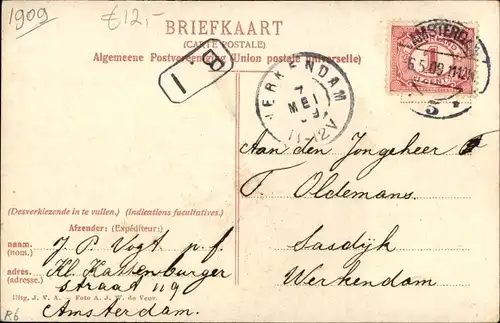 1909
€12,-
BRIEFKAART
(CARTE POSTALE)
Algemeene Postvereeniging (Union postale universelle)
I B
WERKENDAM
AMSTERD
6.5.09 11-12
5
11-12V
1
Aan den Jongeheer
F. Oldemans.
Sasdijk
Werkendam
(Desverkiezende in te vullen.) (Indications facultatives.)
Afzender: (Expéditeur:)
naam. J. P. Vogt p. f.
(nom.)
adres. Kl. Kattenburger
(adresse.) straat 119
Uitg. J. V. A. – Foto A. J. W. de Veer.
Amsterdam.
R6